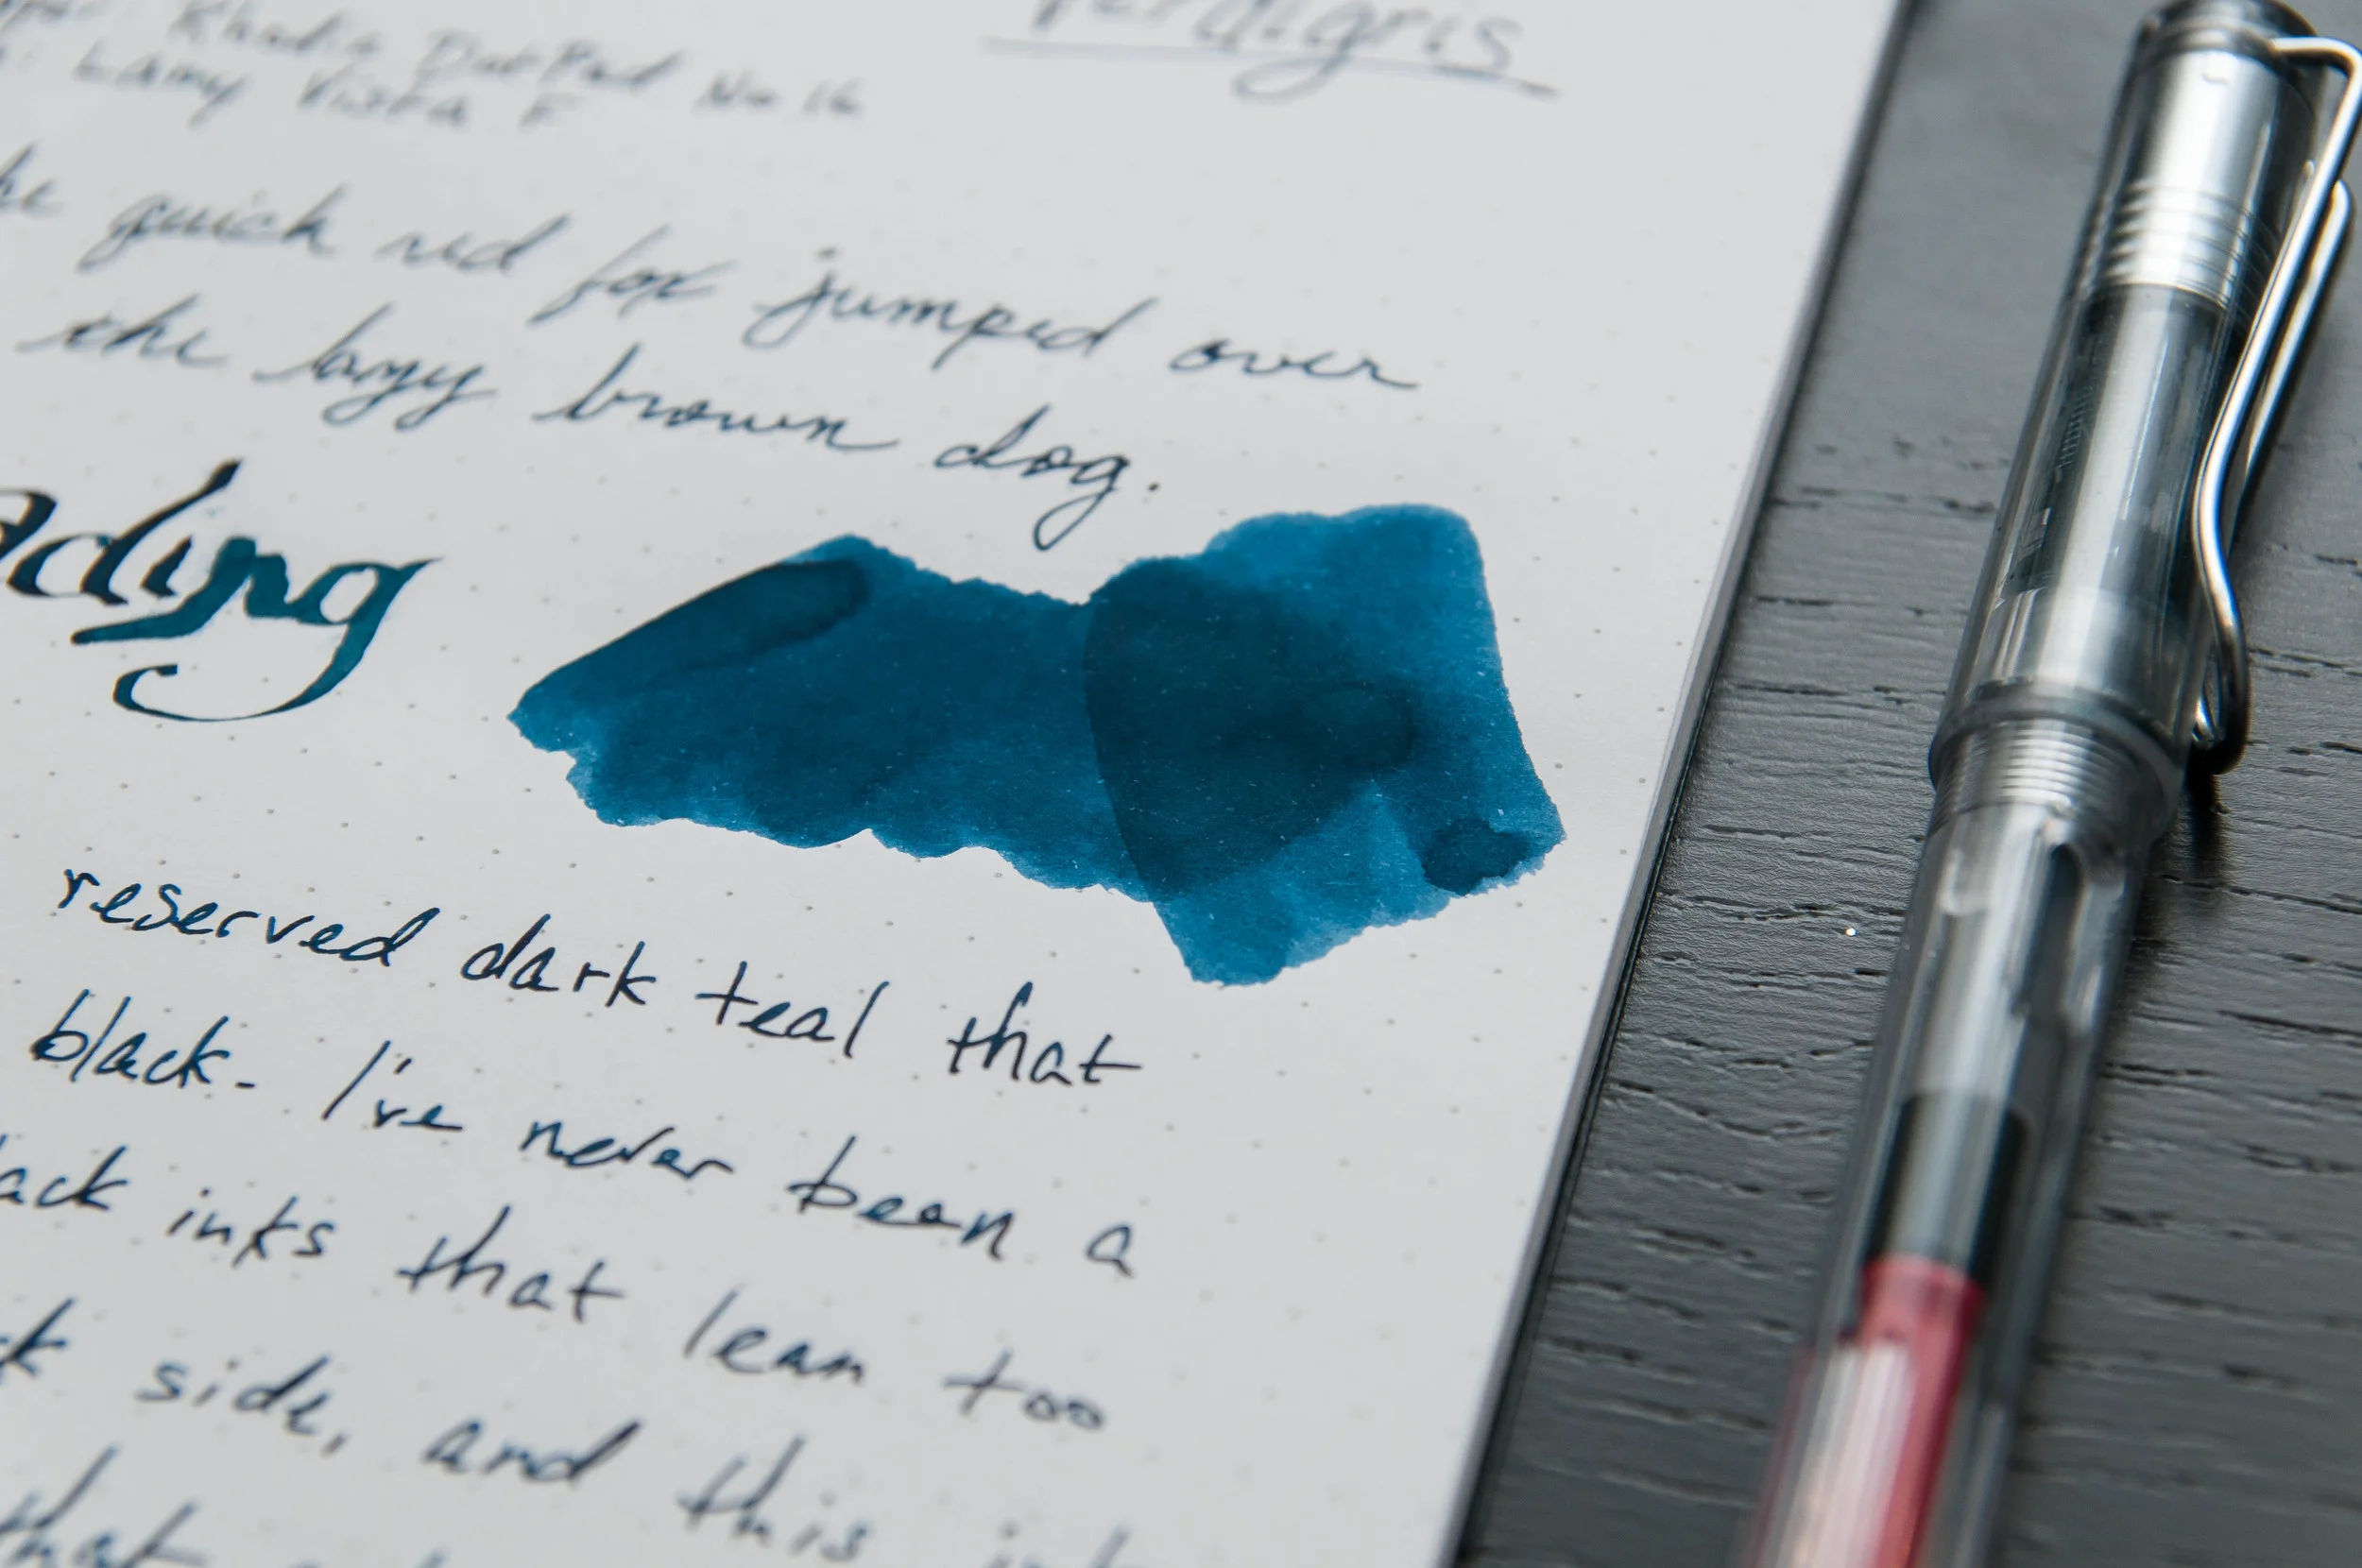 Verdigris
Rhodia DotPad No 16
Lamy Vista F
quick red fox jumped over
the lazy brown dog.
ading
reserved dark teal that
black. I've never been a
ack inks that lean too
k side, and this ink
that